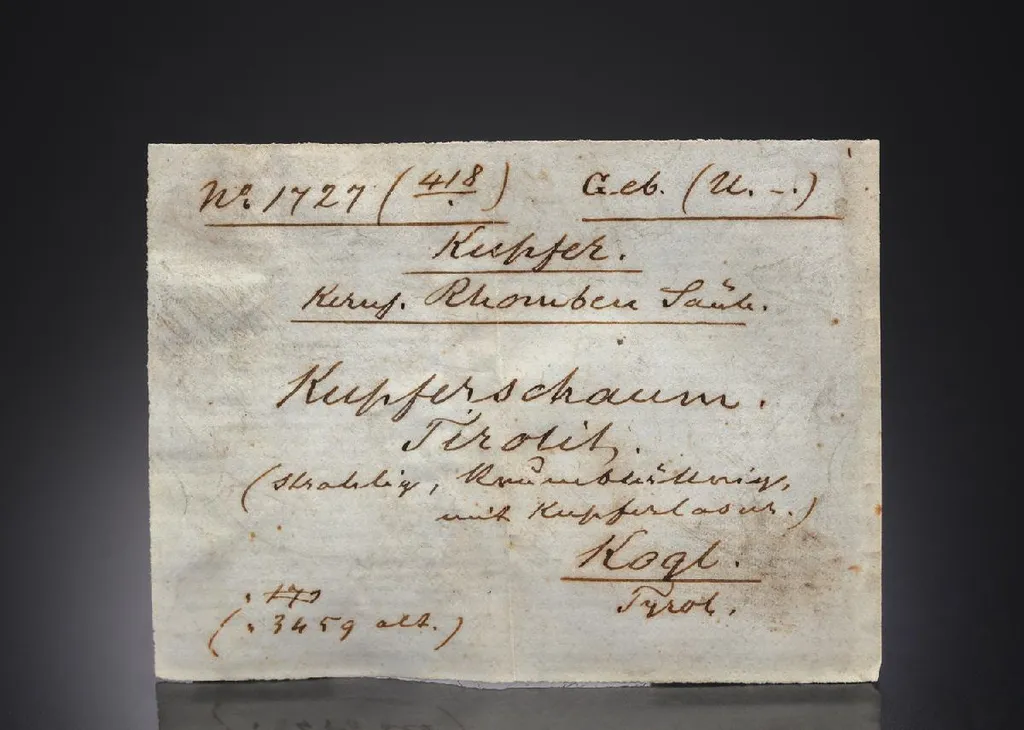 No. 1727 (418) Geb. (U. -.)
Kupfer.
Rhomben Säul.
Kupferschaum.
Tirolit.
(strahlig, Krümblättrig,
mit Kupferlasur.)
Kogl.
Tyrol.
. 173
(. 3459 alt.)